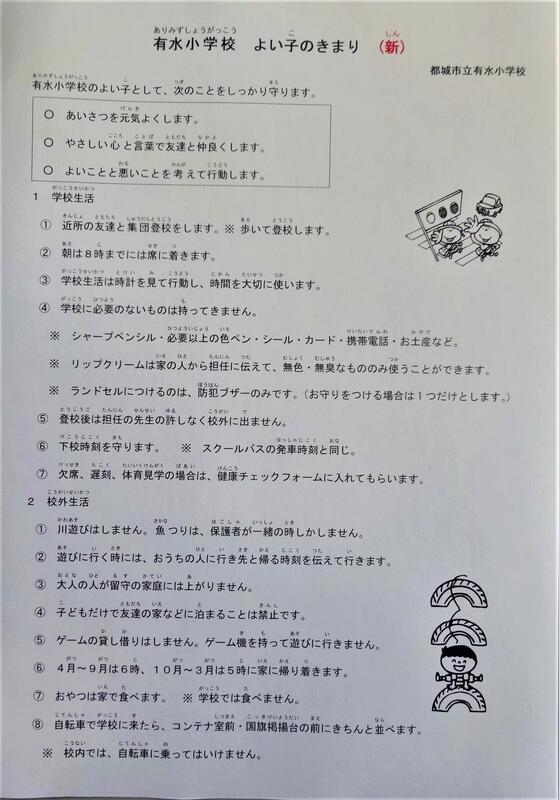 有水小学校 よい子のきまり (新)
都城市立有水小学校
有水小学校のよい子として、次のことをしっかり守ります。
○ あいさつを元気よくします。
○ やさしい心と言葉で友達と仲良くします。
○ よいことと悪いことを考えて行動します。
1 学校生活
① 近所の友達と集団登校をします。※ 歩いて登校します。
② 朝は8時までには席に着きます。
③ 学校生活は時計を見て行動し、時間を大切に使います。
④ 学校に必要のないものは持ってきません。
※ シャープペンシル・必要以上の色ペン・シール・カード・携帯電話・お土産など。
※ リップクリームは家の人から担任に伝えて、無色・無臭なもののみ使うことができます。
※ ランドセルにつけるのは、防犯ブザーのみです。(お守りをつける場合は1つだけとします。)
⑤ 登校後は担任の先生の許しなく校外に出ません。
⑥ 下校時刻を守ります。 ※ スクールバスの発車時刻と同じ。
⑦ 欠席、遅刻、体育見学の場合は、健康チェックフォームに入れてもらいます。
2 校外生活
① 川遊びはしません。魚つりは、保護者が一緒の時しかしません。
② 遊びに行く時には、おうちの人に行き先と帰る時刻を伝えて行きます。
③ 大人の人が留守の家庭には上がりません。
④ 子どもだけで友達の家などに泊まることは禁止です。
⑤ ゲームの貸し借りはしません。ゲーム機を持って遊びに行きません。
⑥ 4月~9月は6時、10月~3月は5時に家に帰り着きます。
⑦ おやつは家で食べます。 ※ 学校では食べません。
⑧ 自転車で学校に来たら、コンテナ室前・国旗掲揚台の前にきちんと並べます。
※ 校内では、自転車に乗ってはいけません。